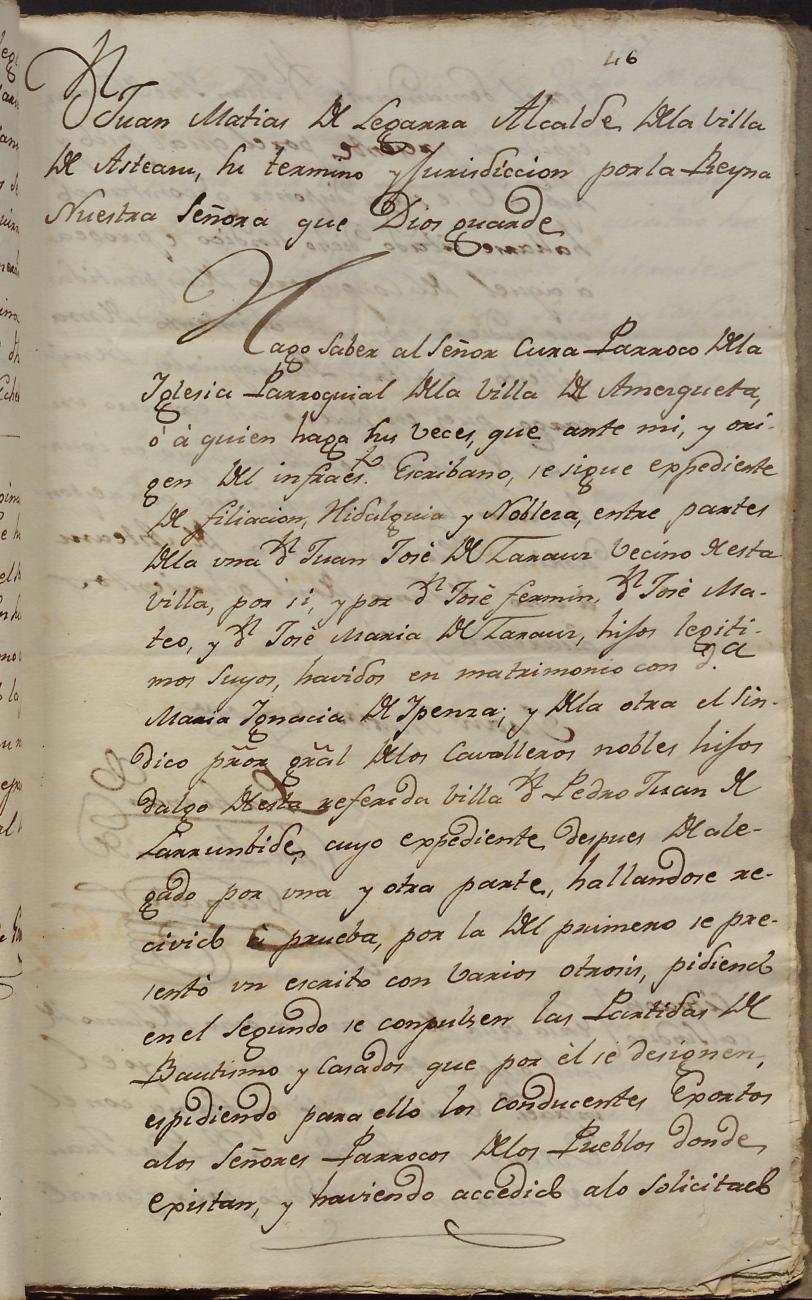 46
Dn Juan Matias De Legarra Alcalde, Dela Villa
De Asteasu, su termino y Jurisdiccion por la Reyna
Nuestra Señora que Dios guarde,
Hago Saber al Señor Cura Parroco Dela
Iglesia Parroquial Dela Villa De Amezqueta,
ó á quien haga sus veces, que ante mi, y ori-
gen Del infraesto. Escribano, se sigue expediente
De filiacion, Hidalguia y Nobleza, entre partes
Dela vna Dn Juan José De Zarauz Vecino Desta
villa, por si, y por Dn José fermin, Dn José Ma-
teo, y Dn José Maria De Zarauz, hijos legiti-
mos Suyos, havidos en matrimonio con Da.
Maria Ignacia De Ipenza; y Dela otra el Sin-
dico prõr grãl Delos Cavalleros nobles hijos
dalgo Desta referida Villa Dn Pedro Juan de
Larrunbide, cuyo expediente, despues De ale-
gado por vna y otra parte, hallandose re-
civido à prueba, por la Del primero se pre-
sentó vn escrito con varios otrosis, pidiendo
en el Segundo se conpulsen las Partidas De
Bautismo y Casados que por él se designen,
espidiendo para ello los conducentes Exortos
alos Señores Parrocos Delos Pueblos donde,
existan, y haviendo accedido alo Solicitado